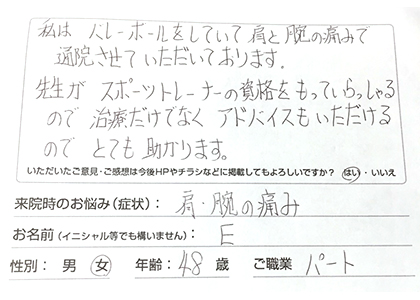 私は バレーボールをしていて 肩と腕の痛みで
通院させていただいております。
先生が スポーツトレーナーの資格をもっていらっしゃる
ので 治療だけでなく アドバイスもいただける
ので とても 助かります。
いただいたご意見・ご感想は今後HPやチラシなどに掲載してもよろしいですか? はい・いいえ
来院時のお悩み(症状): 肩・腕の痛み
お名前(イニシャル等でも構いません): E
性別: 男 女 年齢: 48 歳 ご職業 パート